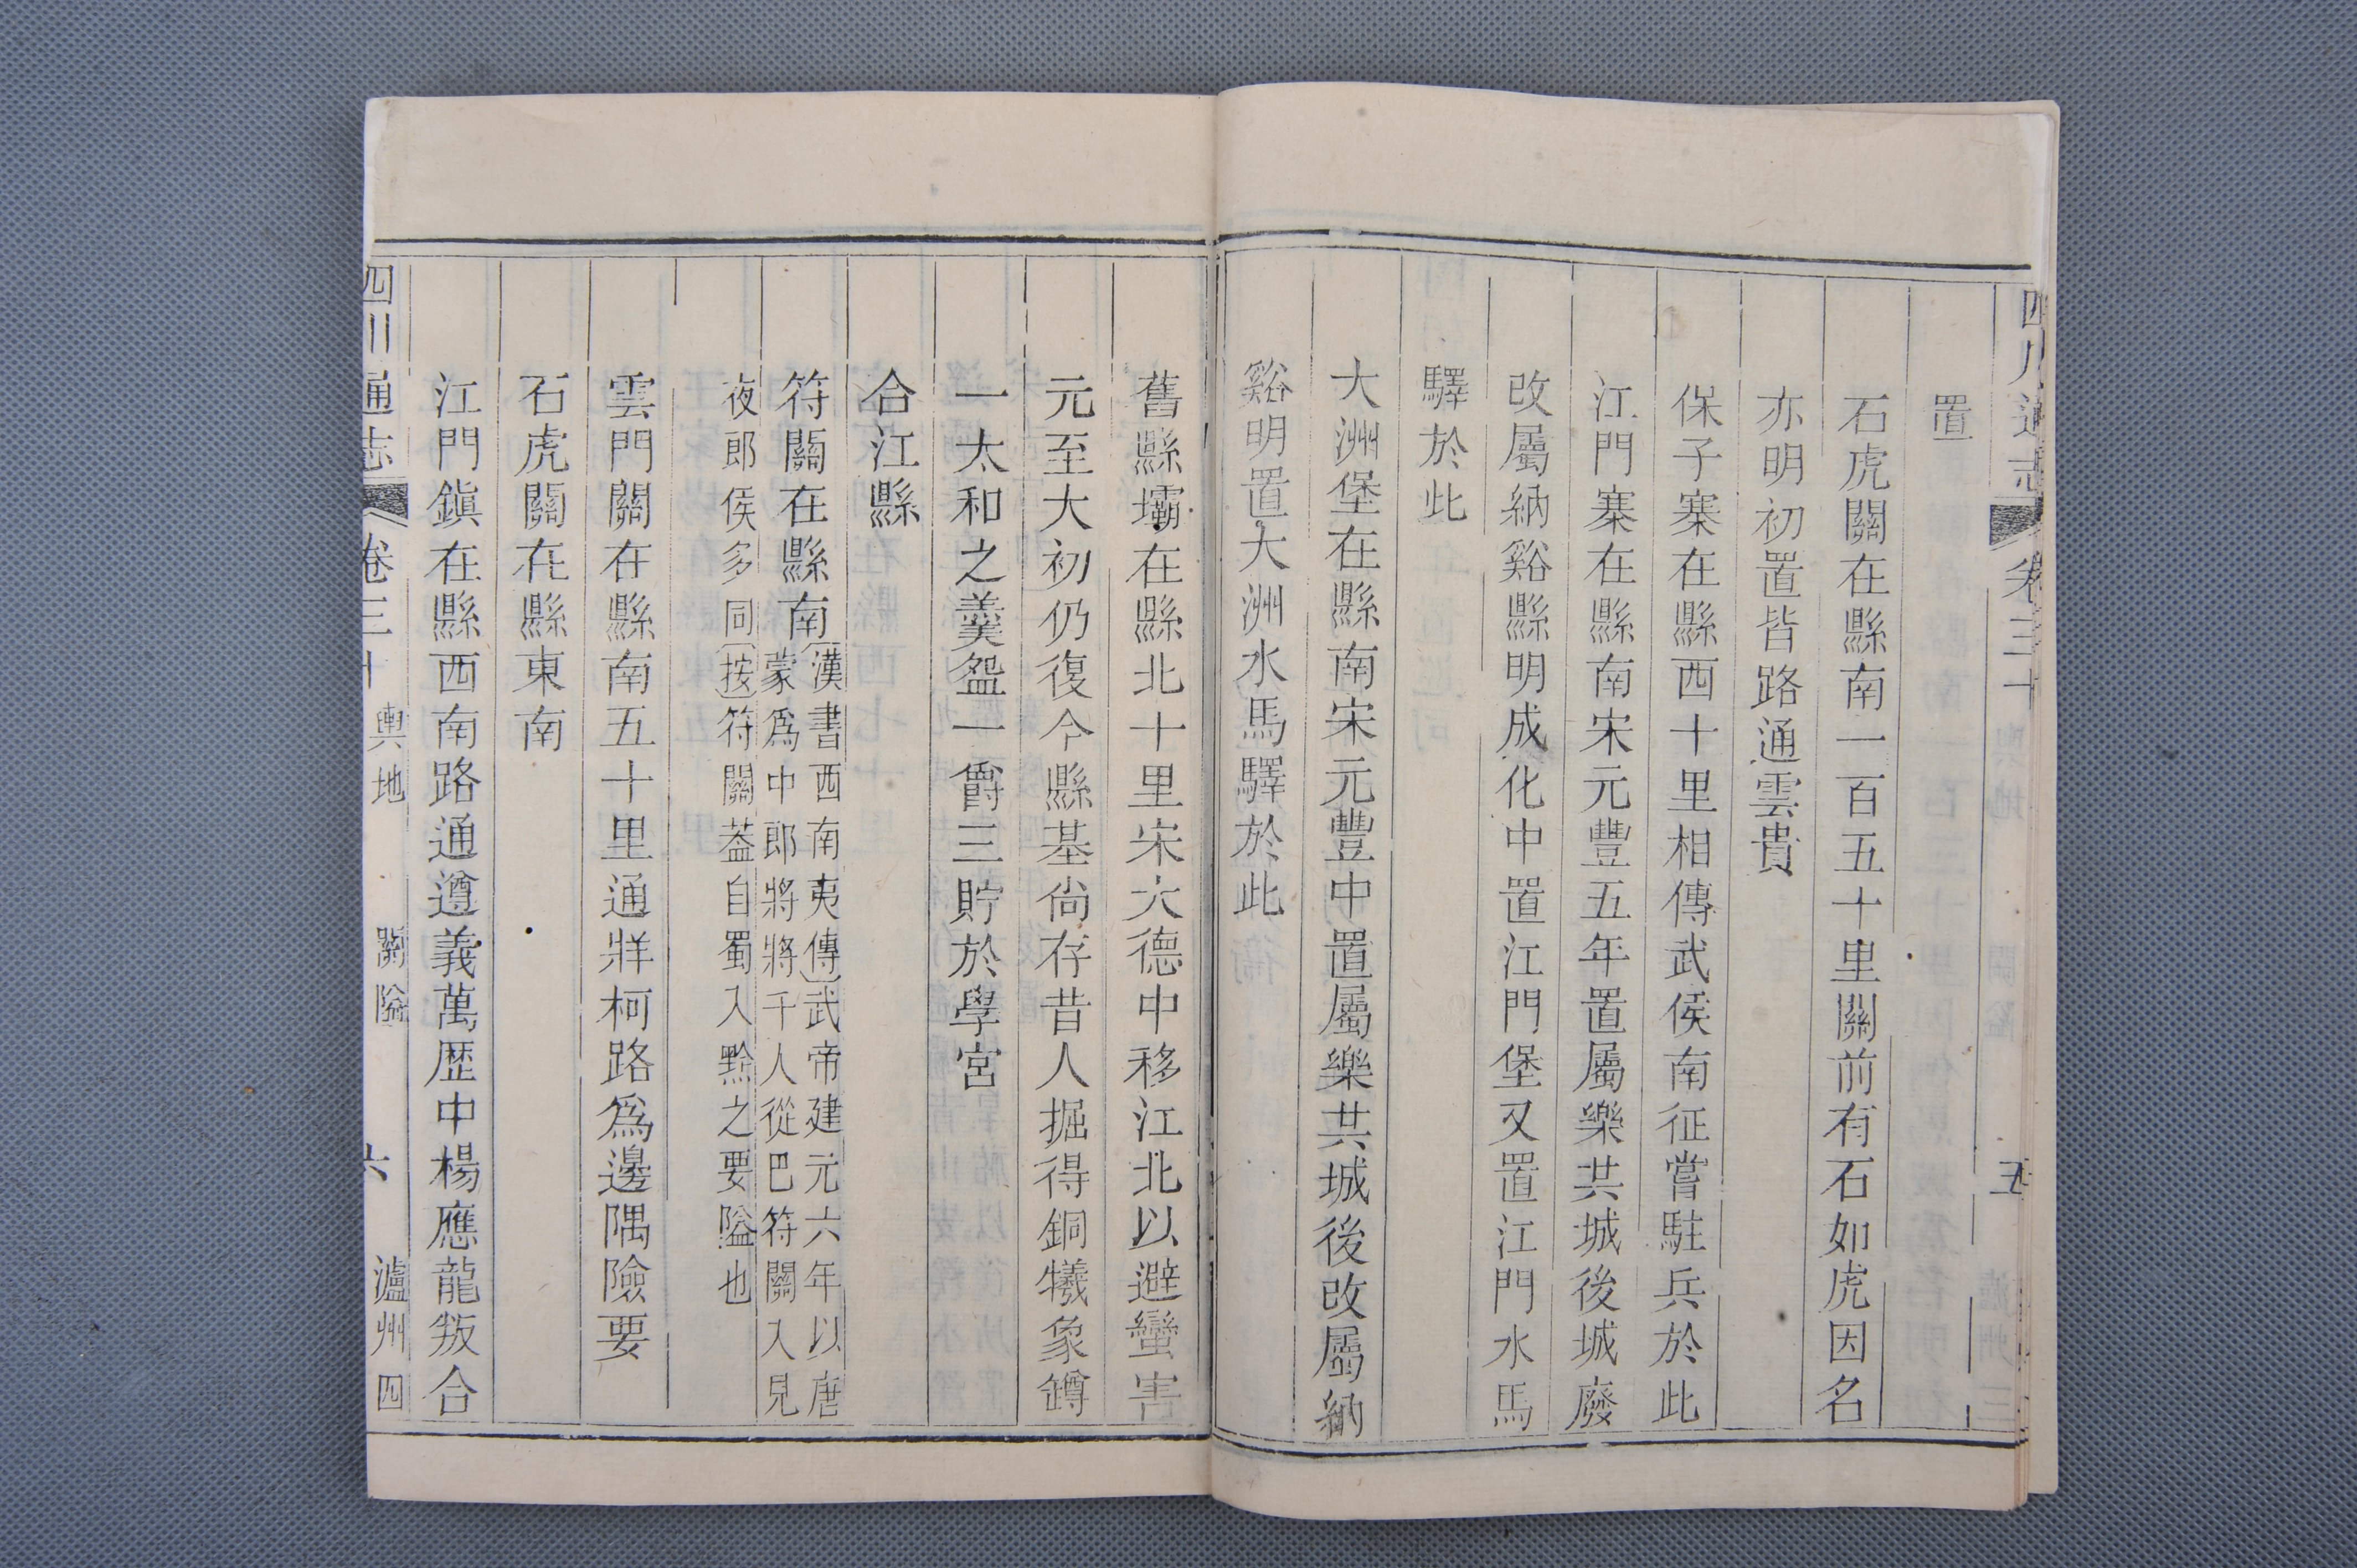 四川通志 卷三十 輿地 關隘 五 瀘州三
置
石虎關在縣南一百五十里關前有石如虎因名
亦明初置皆路通雲貴
保子寨在縣西十里相傳武侯南征嘗駐兵於此
江門寨在縣南宋元豐五年置屬樂共城後城廢
改屬納谿縣明成化中置江門堡又置江門水馬
驛於此
大洲堡在縣南宋元豐中置屬樂共城後改屬納
谿明置大洲水馬驛於此
舊縣壩在縣北十里宋大德中移江北以避蠻害
元至大初仍復今縣基尙存昔人掘得銅犧象罇
一太和之羹盌一爵三貯於學宮
合江縣
符關在縣南漢書西南夷傳武帝建元六年以唐
蒙爲中郎將將千人從巴符關入見
夜郎侯多同按符關葢自蜀入黔之要隘也
雲門關在縣南五十里通牂柯路爲邊隅險要
石虎關在縣東南
江門鎭在縣西南路通遵義萬歷中楊應龍叛合
四川通志 卷三十 輿地 關隘 六 瀘州四